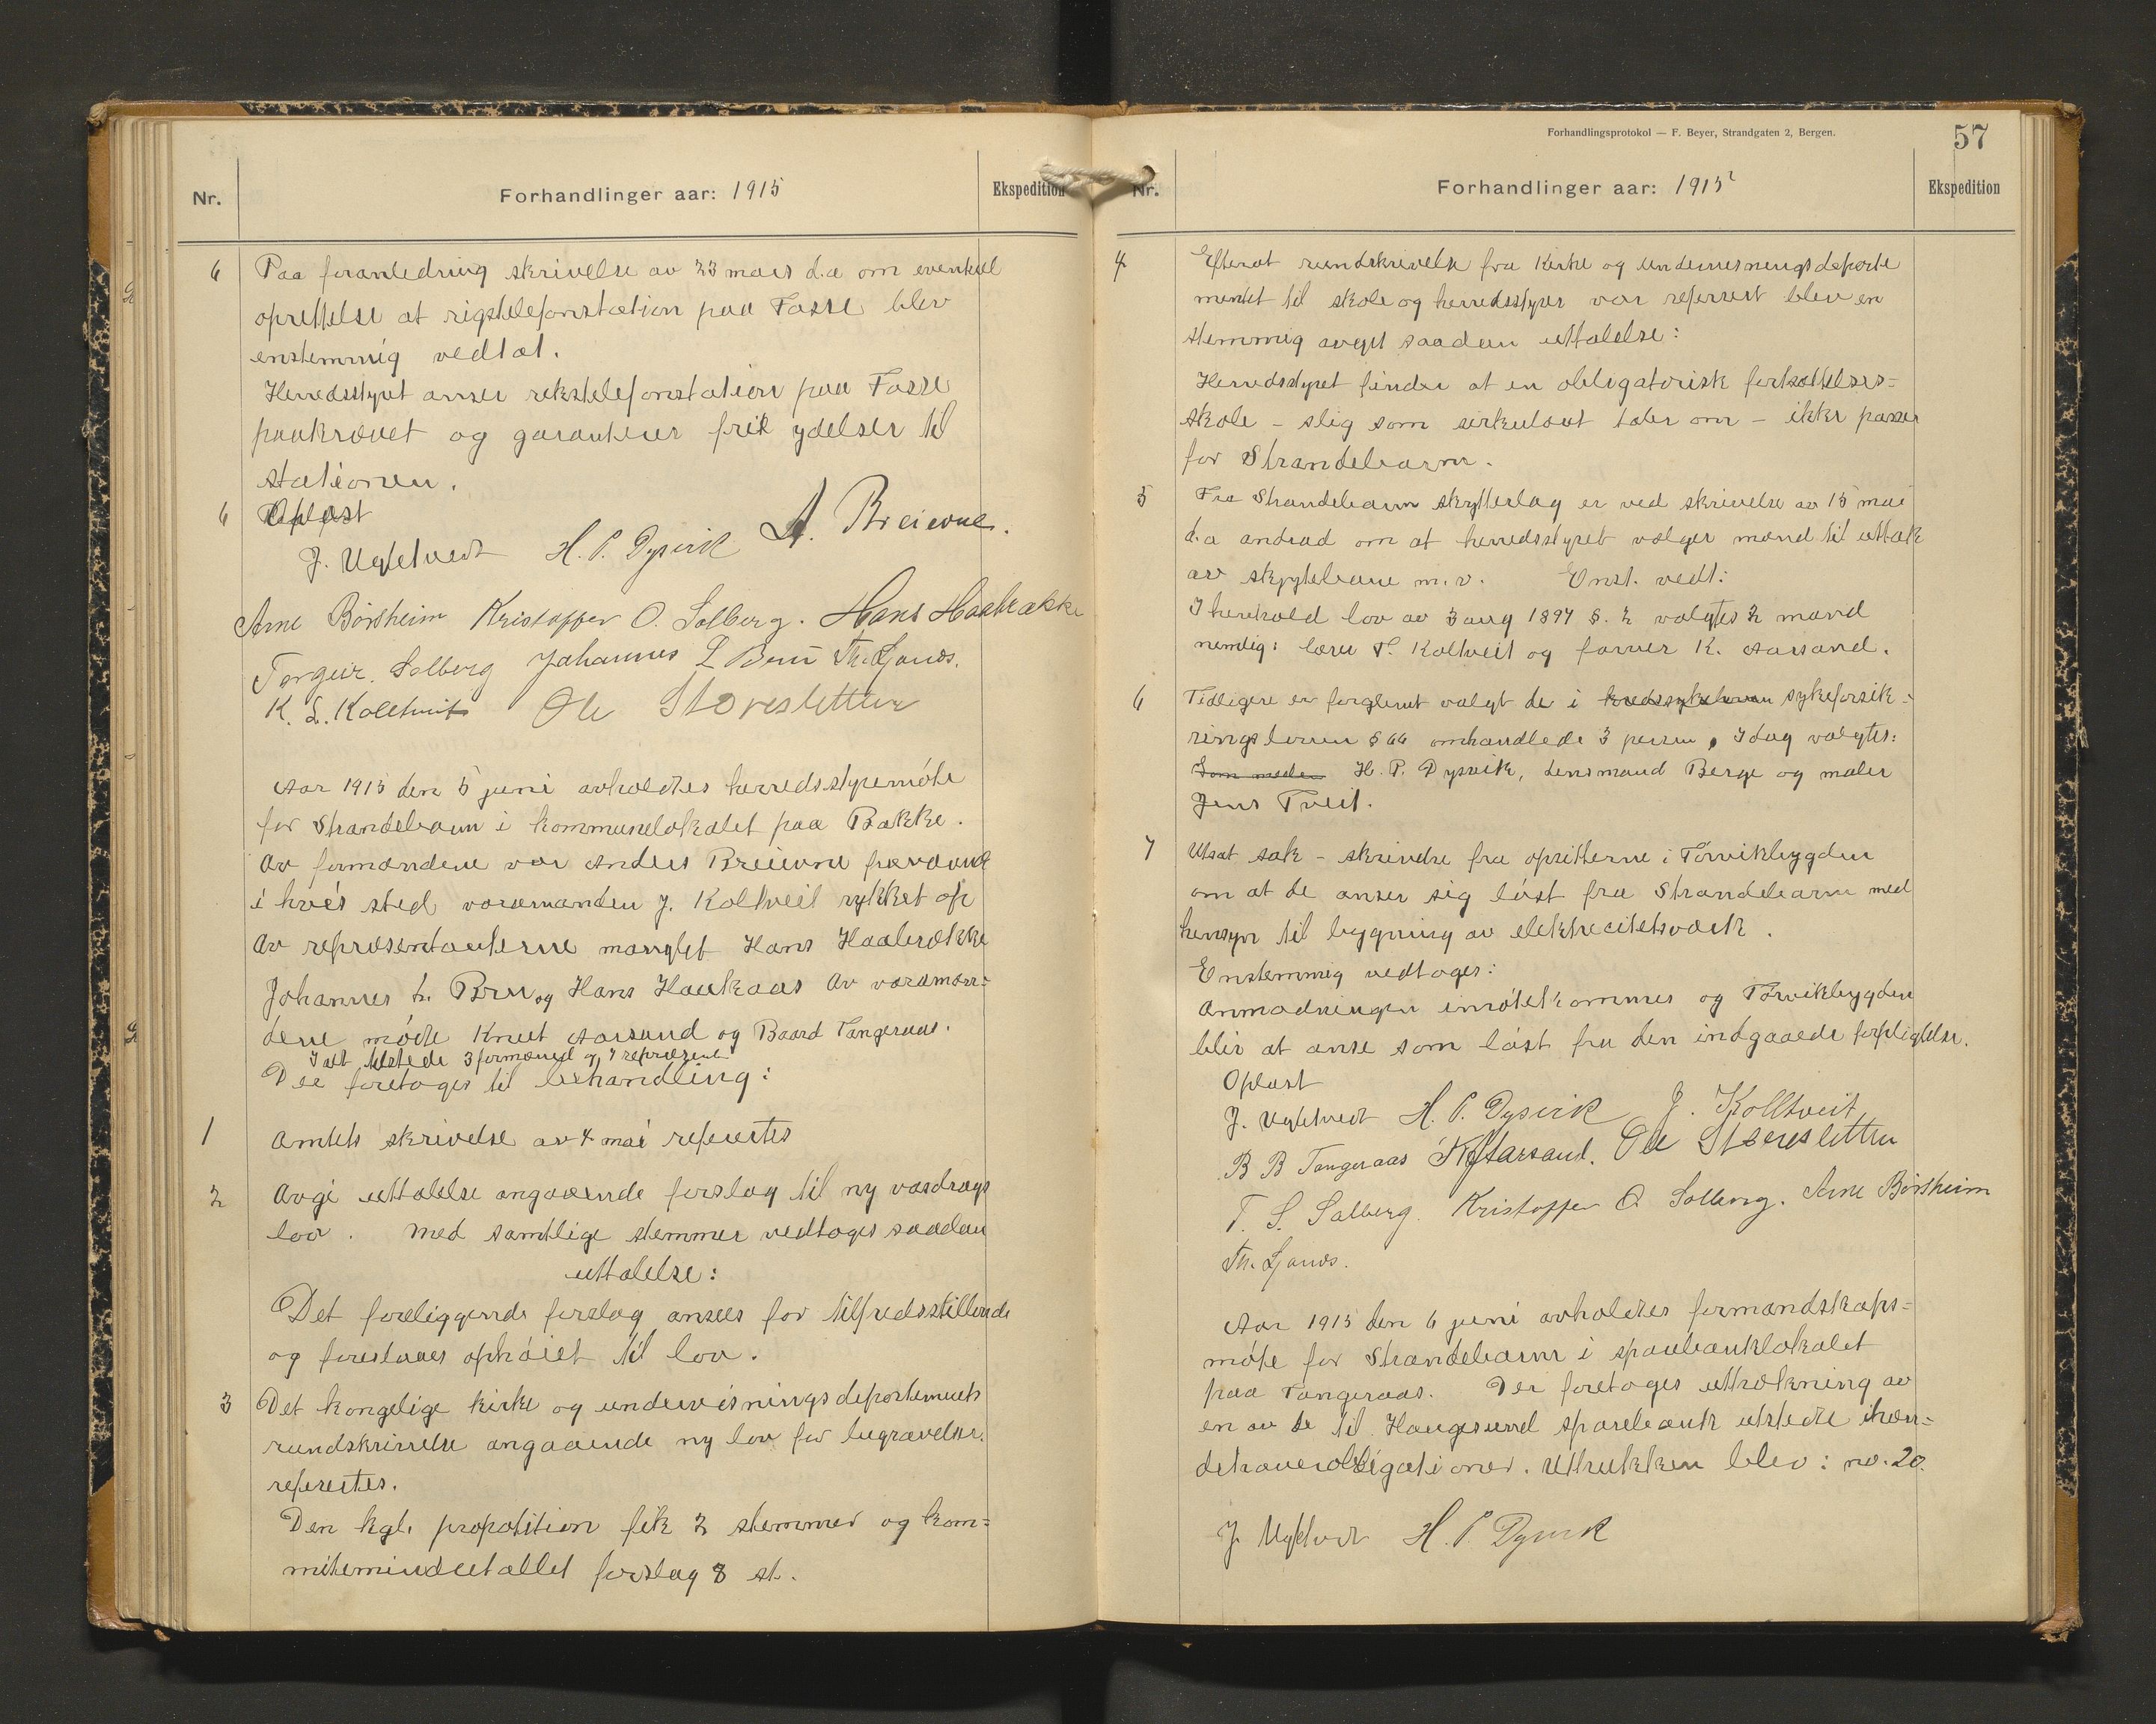 Nr.
Forhandlinger aar: 1915
Ekspedition
6 Paa foranledning skrivelse av 23 mars d.a om eventuel
oprettelse at rigstelefonstation paa Fosse blev
enstemmig vedtat.
Herredsstyret anser rikstelefonstation paa Fosse
paakrævet og garanterer frik ydelser til
stationen.
6 Oplæst
J. Ugletvedt H. P. Dysvik A. Breievne.
Arne Børsheim Kristoffer O. Solberg. Hans Haabrække
Torgeir. Solberg Johannes L Bru Th. Ljones.
K. L. Kolltveit Ole Storesletten
Aar 1915 den 5 juni avholdtes herredsstyremöte
for Strandebarm i kommunelokalet paa Bakke.
Av formændene var Anders Breievne fraværende
i hvés sted varamanden J. Koltveit rykket op
Av repræsentanterne manglet Hans Haabrække
Johannes L. Bru og Hans Haukaas Av varamæn=
dene møtte Knut Aarsand og Baard Tangeraas.
Ialt tilstede 3 formænd og 7 repræsent
Der foretoges til behandling:
1 Amtets skrivelse av 4 mai refertes
2 Avgi uttalelse angaaende forslag til ny vasdrags
lov. Med samtlige stemmer vedtoges saadan
uttalelse:
Det foreliggende forslag ansees for tilfredsstillende
og forestaaes ophöiet til lov.
3 Det kongelige kirke og undervisningsdepartements
rundskrivelse angaaende ny lov for begravelser.
refertes.
Den kgl. propotition fik 2 stemmer og kom=
mitemindretallet forslag 8 st.
Forhandlingsprotokol — F. Beyer, Strandgaten 2, Bergen.
57
Nr.
Forhandlinger aar: 1915
Ekspedition
4 Efterat rundskrivelse fra Kirke og undervisningsdeparte
mentet til skole og herredsstyrer var referert blev en
stemmig avgit saadan uttalelse:
Herredsstyret finder at en obligatorisk fortsættelses=
skole - slig som sirkulært taler om - ikke passer
for Strandebarm.
5 Fra Strandebarm skytterlag er ved skrivelse av 15 mai
d.a andrad om at herredsstyret vælger mænd til uttak
av skytebane m.v. Enst. vedt:
I henhold lov av 3 aug 1897 §. 2 valgtes 2 mænd
nemlig: lærer T. Koltveit og farver K. Aarsand.
6 Tidligere er forglemt valgt de i kredssykeloven sykeforsik=
ringsloven § 66 omhandlede 3 person, Idag valgtes:
Som meder H. P. Dysvik, Lensmand Berge og maler
Jens Tveit.
7 Utsat sak - skrivelse fra opsitterne i Törvikbygden
om at de anser sig löst fra Strandebarm med
hensyn til bygning av elektrecitetsværk.
Enstemmig vedtoges:
Anmodningen imötekommes og Törvikbygden
blir at anse som löst fra den indgaaede forpligtelse.
Oplæst
J. Ugletvedt H. P. Dysvik J. Kolltveit
B B Tangeraas K Aarsand. Ole Storesletten
T. S. Solberg. Kristoffer O Solberg. Arne Børsheim
Th. Ljones.
Aar 1915 den 6 juni avholdtes formandskaps=
möte for Strandebarm i sparebanklokalet
paa Tangeraas. Der foretoges uttrækning av
en av de til Haugesund sparebank utstedte ihæn=
dehaverobligationer. Uttrukken blev: no. 20.
J. Ugletvedt H. P. Dysvik